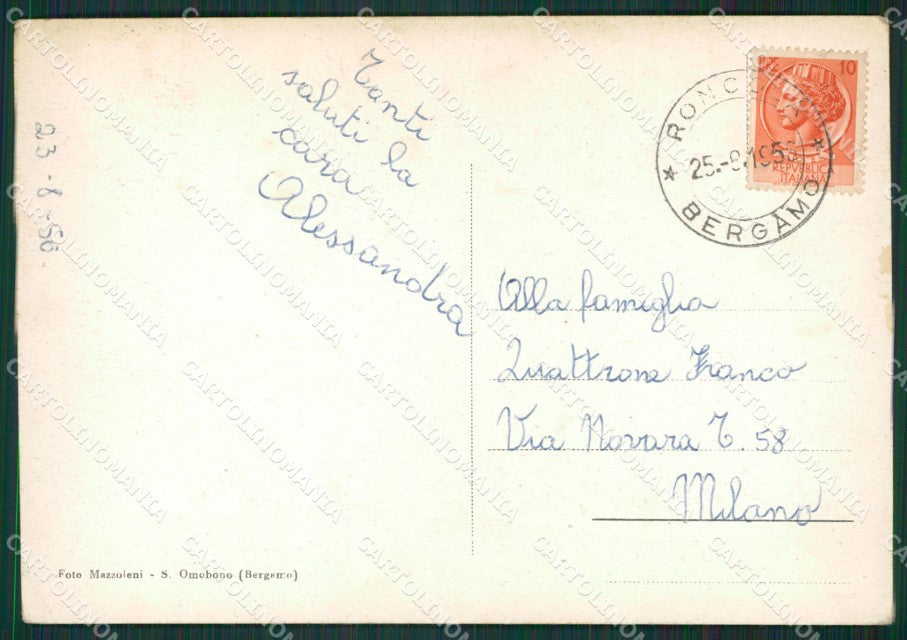 23-8-56.
Tanti
saluti la
cara
Alessandra
10
REPVBBLICA
ITALIANA
25.-8.1956
BERGAMO
Alla famiglia
Quattrone Franco
Via Novara T. 58
Milano
Foto Mazzoleni - S. Omobono (Bergamo)
CARTOLINOMANIA